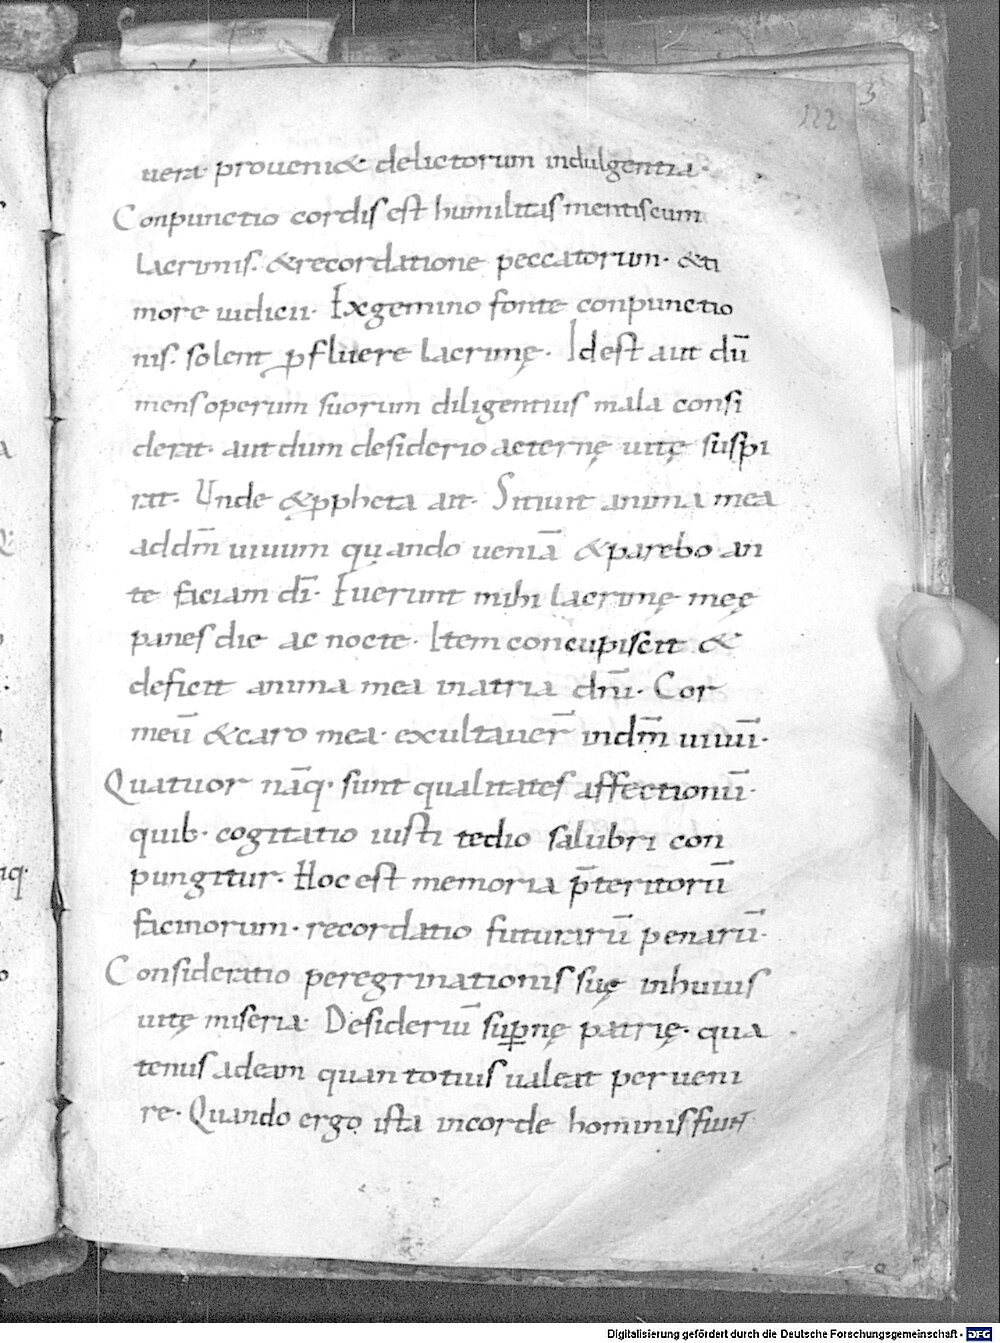 122
3
uera proueni& delictorum indulgentia·
Conpunctio cordis est humilitas mentis cum
lacrimis· & recordatione peccatorum· & ti
more iudicii· Ex gemino fonte conpunctio
nis· solent ꝑfluere lacrimę· Id est aut dū
mens operum suorum diligentius mala consi
derat· aut dum desiderio aeternę uitę suspi
rat· Unde & ꝓpheta ait· Sitiuit anima mea
ad dm̄ uiuum quando ueniā & parebo an
te faciam dī· Fuerunt mihi lacrimę meę
panes die ac nocte· Item concupiscit &
deficit anima mea in atria dn̄i· Cor
meū & caro mea· exultauer̄ in dm̄ uiuū·
Quatuor nāq· sunt qualitates affectionū·
quib· cogitatio iusti tedio salubri con
pungitur· Hoc est memoria p̄teritorū
facinorum· recordatio futurarū penarū·
Consideratio peregrinationis suę in huius
uitę miseria· Desideriū suꝑnę patrię· qua
tenus ad eam quantotius ualeat perueni
re· Quando ergo ista in corde hominis fiunt
Digitalisierung gefördert durch die Deutsche Forschungsgemeinschaft - DFG